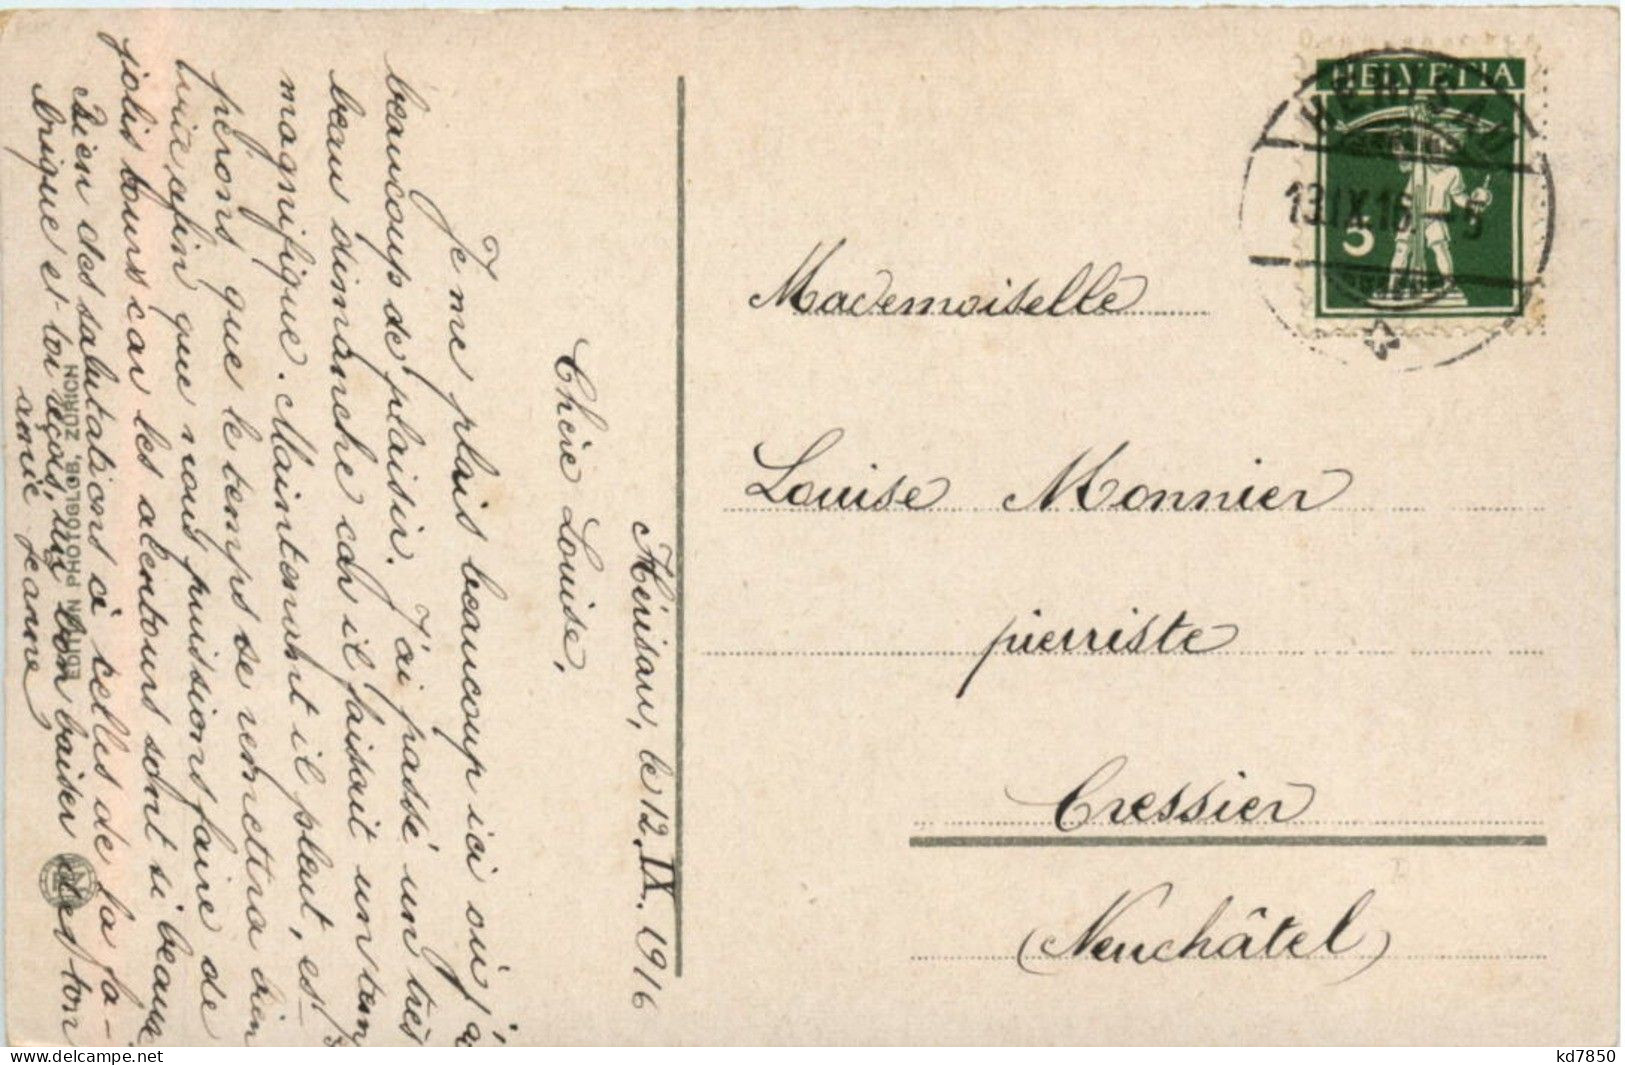 Hérisau, le 12. IX. 1916
Chère Louise,
Je me plais beaucoup ici où j'ai
beaucoup de plaisir. J'ai passé un très
beau dimanche car il faisait un temps
magnifique. Maintenant il pleut, es-
pérons que le temps se remettra bien
vite, afin que nous puissions faire de
jolis tours car les alentours sont si beaux
Bien des salutations à celles de la fa-
brique et toi reçois, un bon baiser de ton
amie Jeanne
EDITION PHOTOGLOB, ZÜRICH
HELVETIA
5
HERISAU
13.IX.16.-9
Mademoiselle
Louise Monnier
pierriste
Cressier
(Neuchâtel)
www.delcampe.net
kd7850